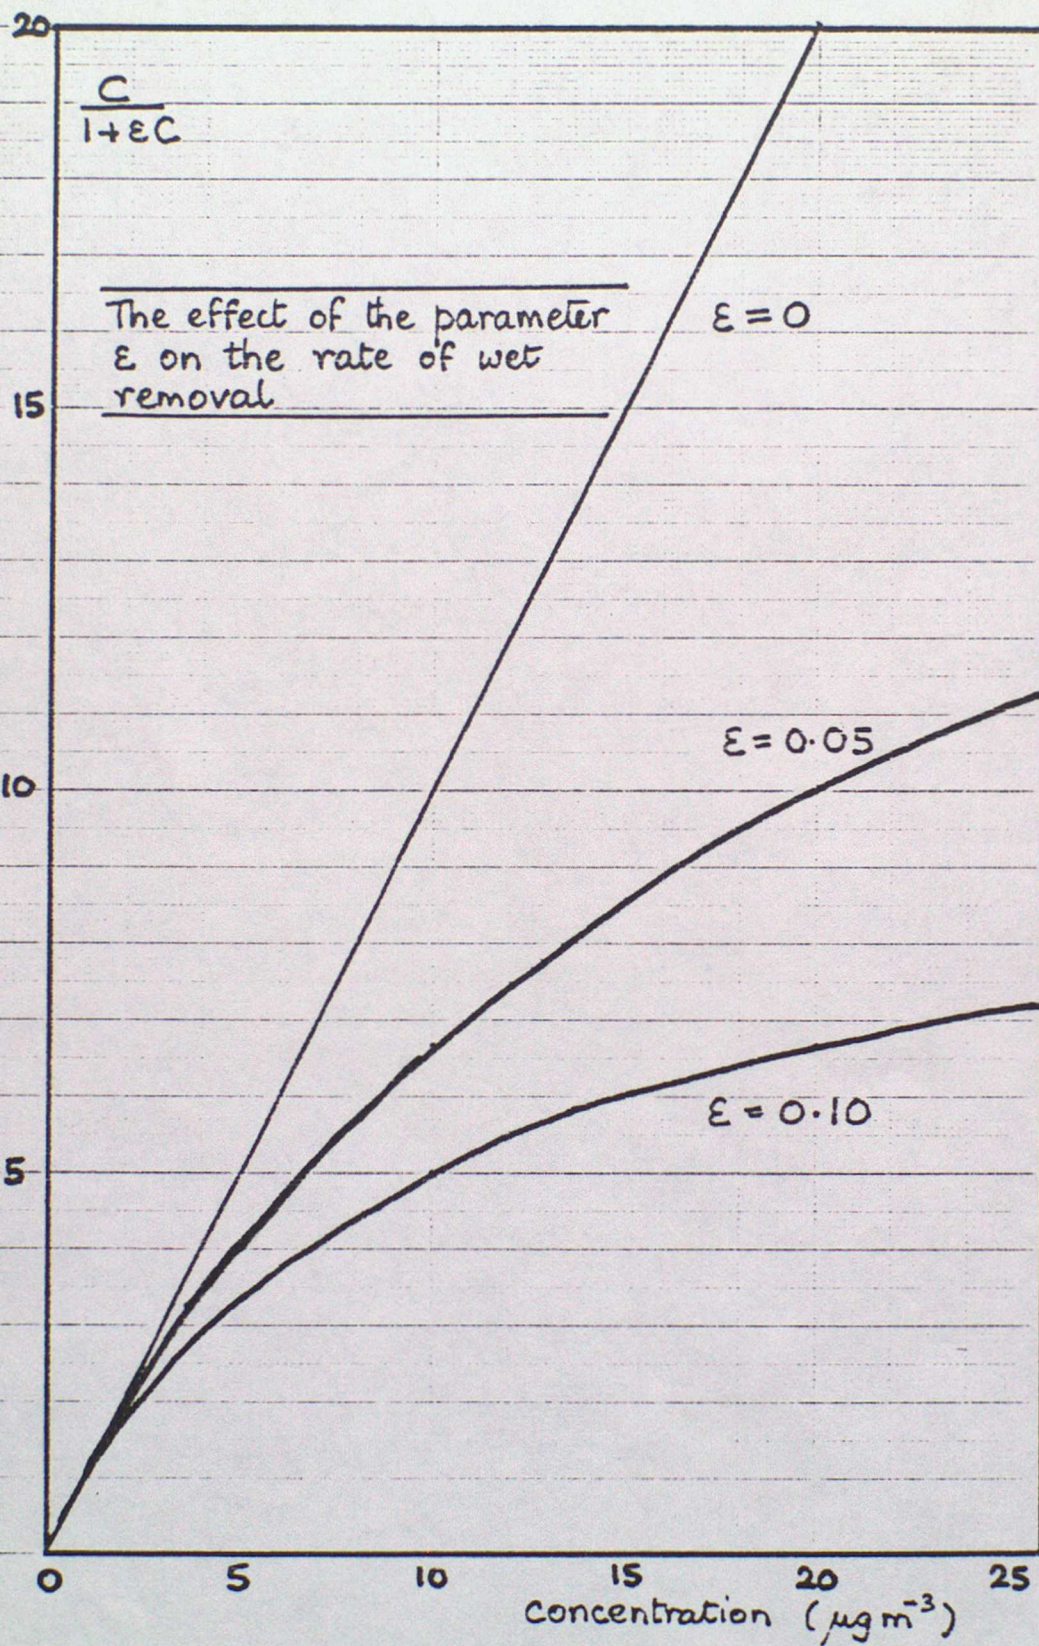 20
C
1+εC
The effect of the parameter
ε on the rate of wet
removal
ε = 0
15
ε = 0·05
10
ε = 0·10
5
0 5 10 15 20 25
concentration (μg m⁻³)